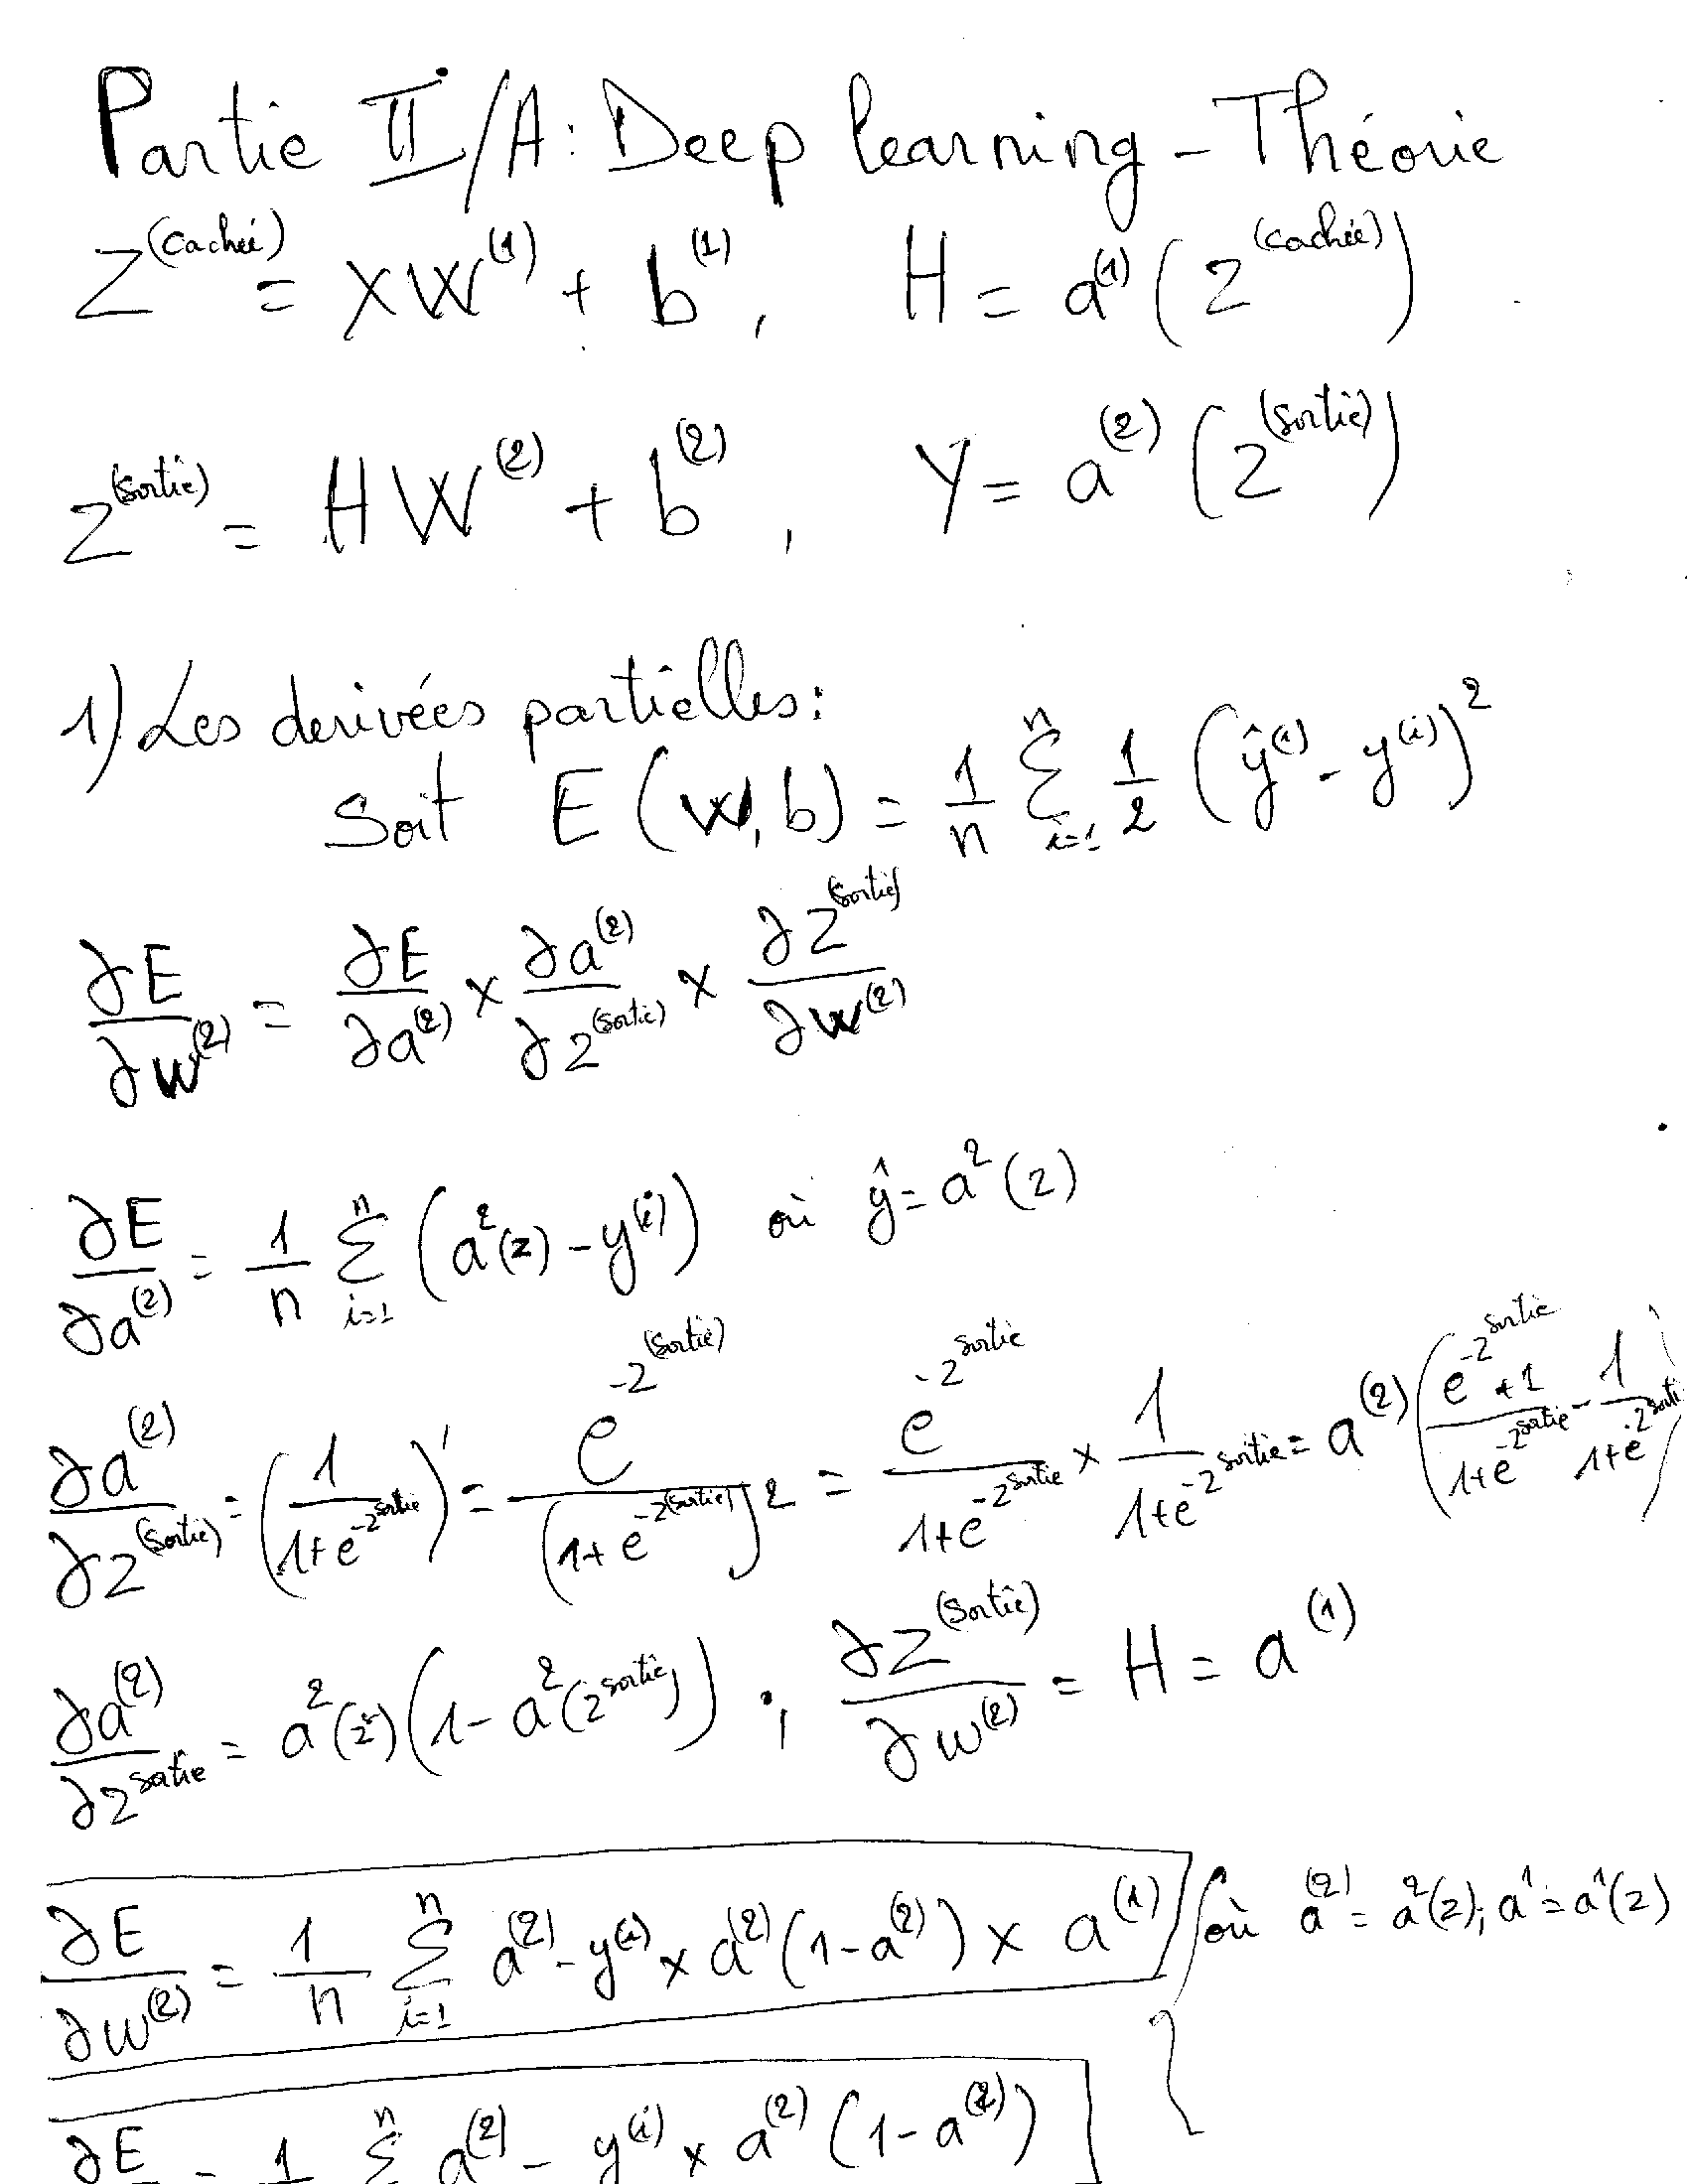 Partie II/A: Deep learning - Théorie
Z^(cachée) = XW^(1) + b^(1), H = a^(1) (Z^(cachée))
Z^(sortie) = HW^(2) + b^(2), Y = a^(2) (Z^(sortie))
1) Les derivées partielles:
Soit E(W,b) = 1/n Σ_{i=1}^n 1/2 (ŷ^(i) - y^(i))^2
∂E/∂W^(2) = ∂E/∂a^(2) × ∂a^(2)/∂Z^(sortie) × ∂Z^(sortie)/∂W^(2)
∂E/∂a^(2) = 1/n Σ_{i=1}^n (a^2(z) - y^(i)) où ŷ = a^2(z)
∂a^(2)/∂Z^(sortie) = (1/(1+e^{-Z^sortie}))' = e^{-Z^(sortie)}/(1+e^{-Z^(sortie)})^2 = e^{-Z^sortie}/(1+e^{-Z^sortie}) × 1/(1+e^{-Z^sortie}) = a^(2) ((e^{-Z^sortie}+1)/(1+e^{-Z^sortie}) - 1/(1+e^{-Z^sortie}))
∂a^(2)/∂Z^sortie = a^2(z)(1 - a^2(Z^sortie)) ; ∂Z^(sortie)/∂W^(2) = H = a^(1)
∂E/∂W^(2) = 1/n Σ_{i=1}^n a^(2) - y^(i) × a^(2)(1-a^(2)) × a^(1) où a^(2) = a^2(z); a^1 = a^1(z)
∂E = 1 Σ^n a^(2) - y^(i) × a^(2) (1-a^(2))